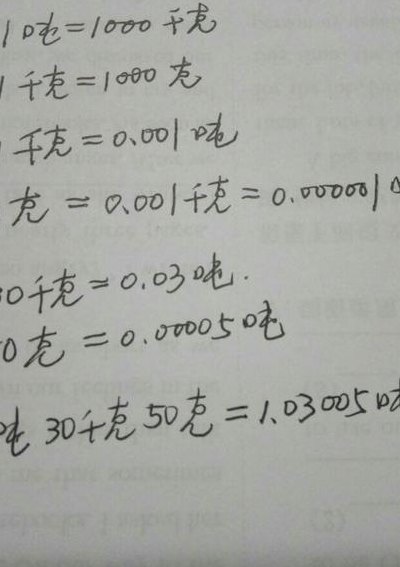 1吨=1000千克
1千克=1000克
千克=0.001吨
克=0.001千克=0.000001
30千克=0.03吨.
0克=0.00005吨
吨30千克50克=1.03005吨